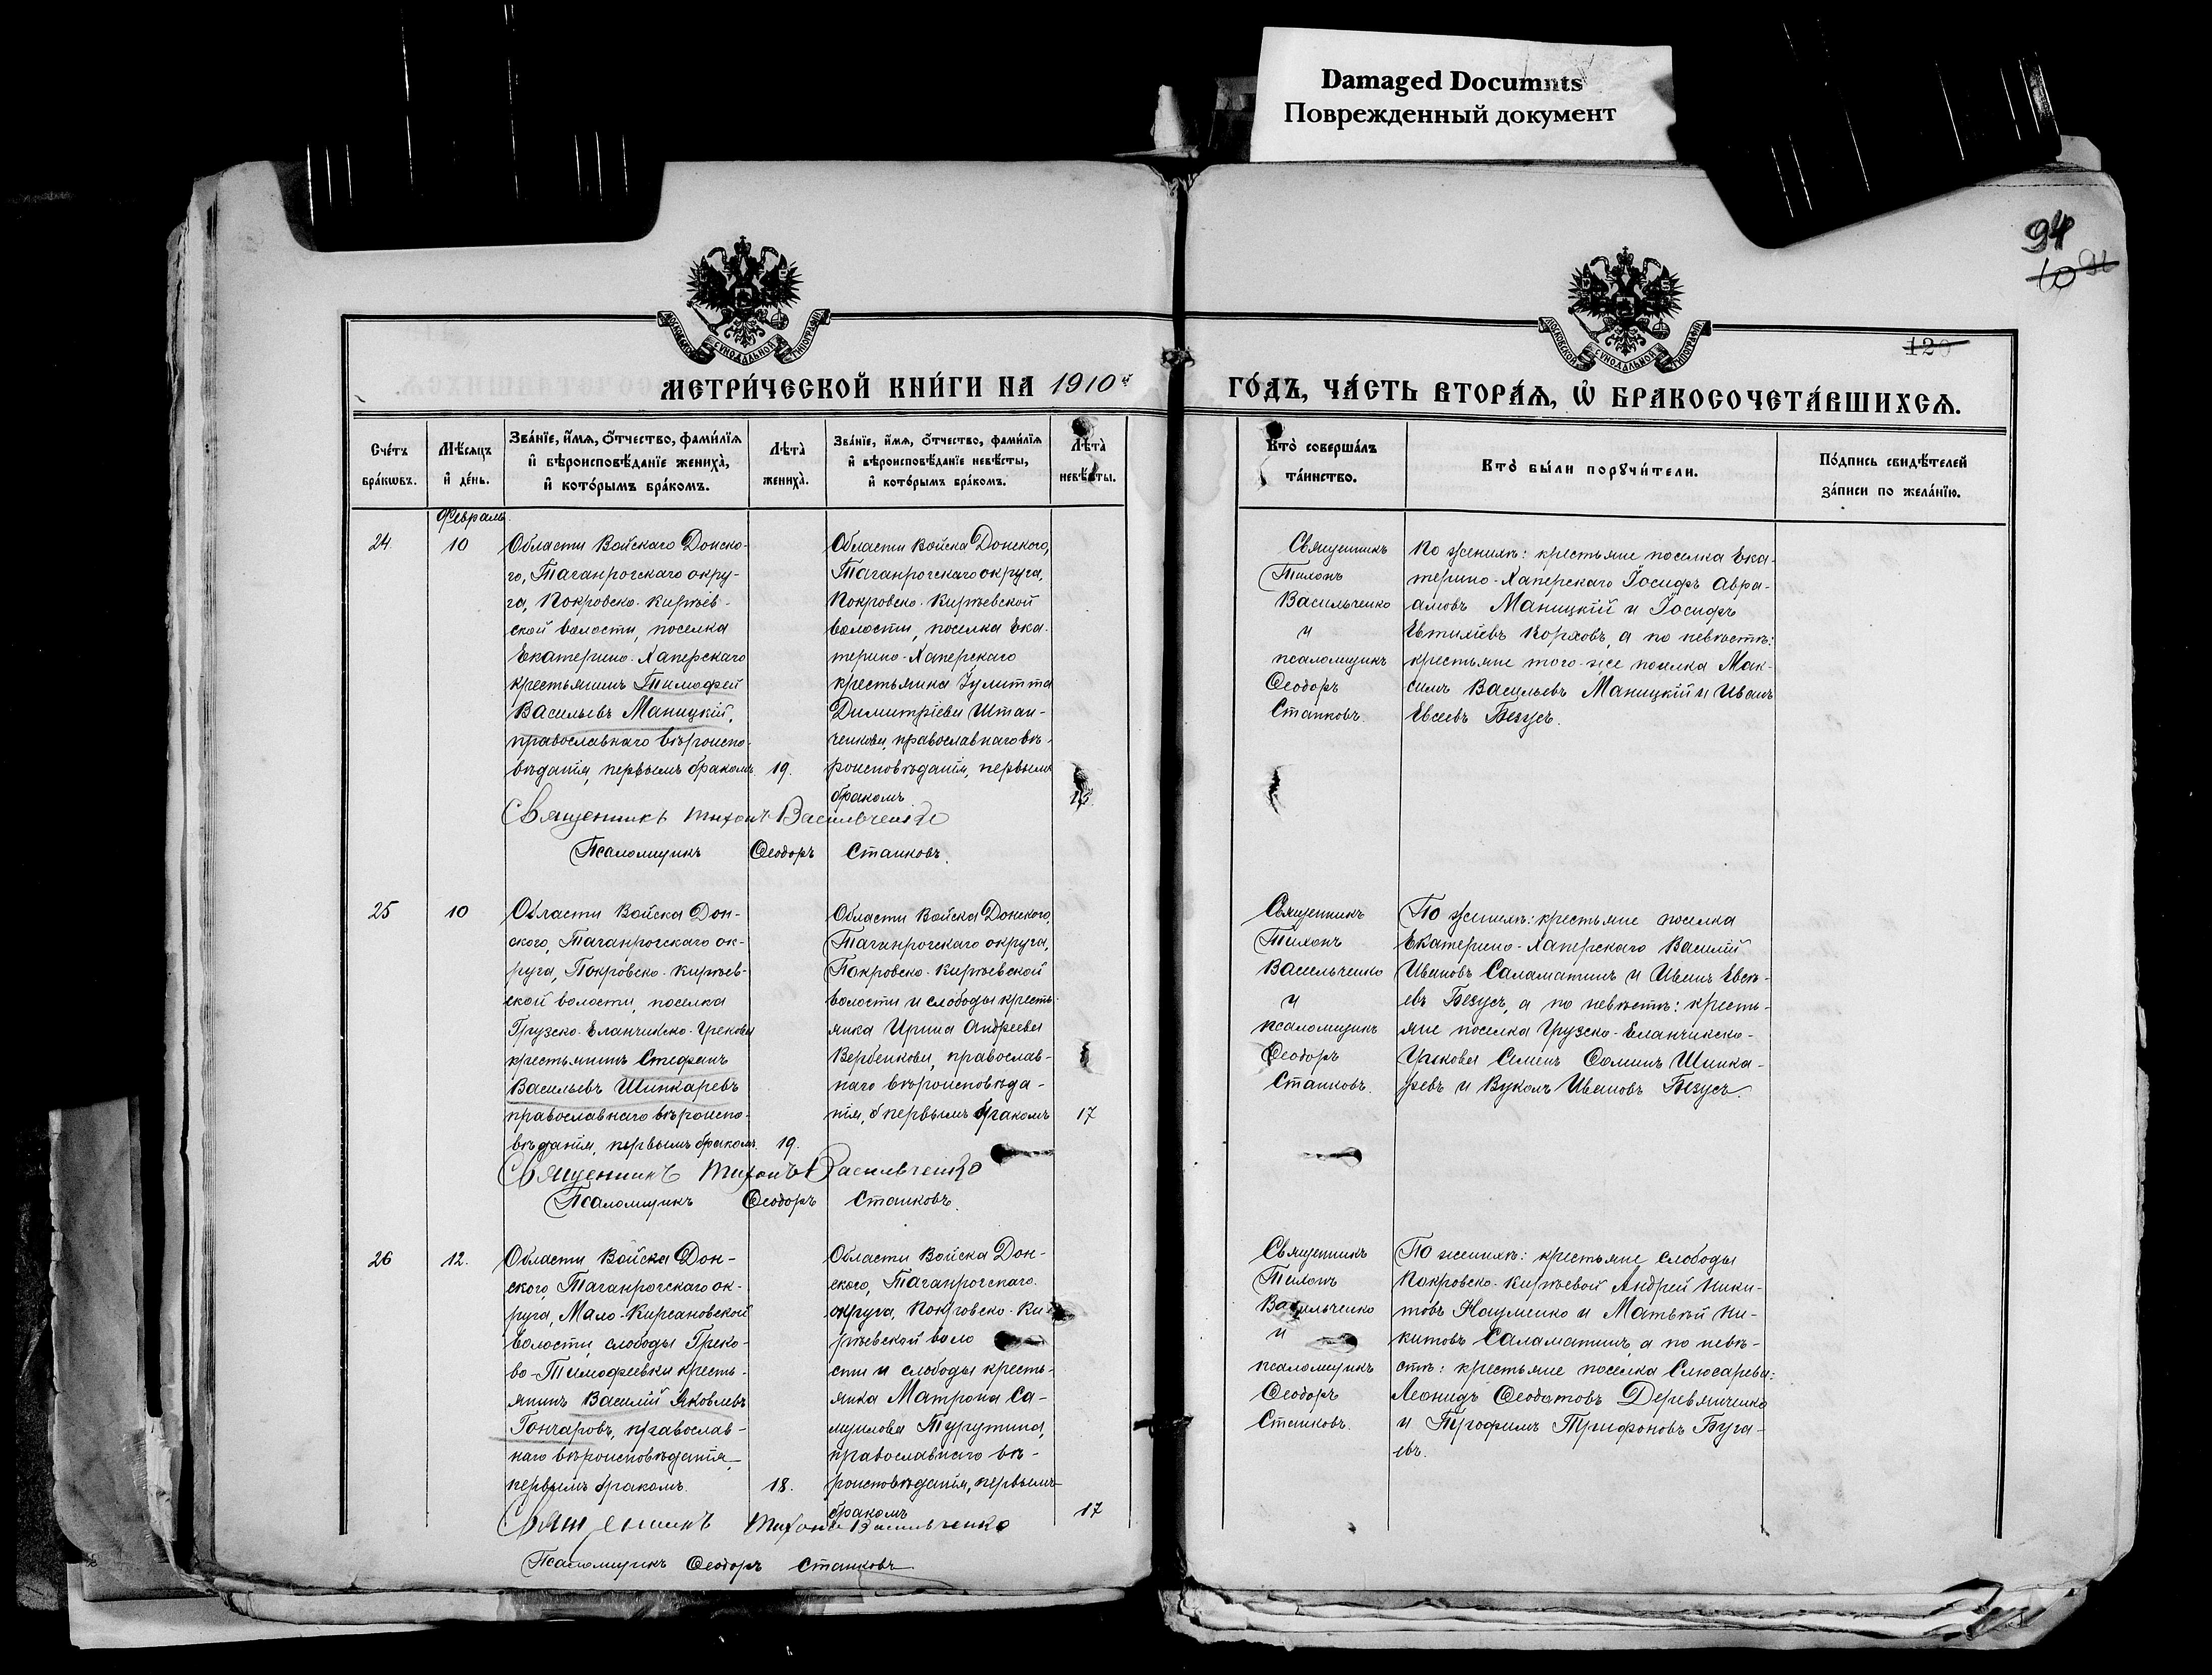 Damaged Documnts
Поврежденный документ
94
120
МОСКОВСКОЙ СѴНОДАЛЬНОЙ ТИПОГРАФІИ
МОСКОВСКОЙ СѴНОДАЛЬНОЙ ТИПОГРАФІИ
МЕТРИ́ЧЕСКОЙ КНИ́ГИ НА 1910й
ГО́ДЪ, ЧА́СТЬ ВТОРА́Ѧ, Ѽ БРАКОСОЧЕТА́ВШИХСѦ.
Сче́тъ
бра́кѡвъ.
Мѣ́сяцъ
и҆ де́нь.
Зва́нїе, и҆́мѧ, ѻ҆́тчество, фами́лїѧ
и҆ вѣроисповѣ́данїе жениха̀,
и҆ кото́рымъ бра́комъ.
Лѣта̀
жениха̀.
Зва́нїе, и҆́мѧ, ѻ҆́тчество, фами́лїѧ
и҆ вѣроисповѣ́данїе невѣ́сты,
и҆ кото́рымъ бра́комъ.
Лѣта̀
невѣ́сты.
Кто̀ соверша́лъ
та́инство.
Кто̀ бы́ли порꙋчи́тели.
По́дпись свидѣ́телей
за́писи по жела́нїю.
Февраль.
24.
10
Области Войскаго Донско-
го, Таганрогскаго окру-
га, Покровско-Кирѣев-
ской волости, поселка
Екатерино-Хаперскаго
крестьянинъ Тимофей
Васильевъ Маницкій,
православнаго вѣроиспо-
вѣданія, первымъ бракомъ.
19.
Области Войска Донского,
Таганрогскаго округа,
Покровско-Кирѣевской
волости, поселка Ека-
терино-Хаперскаго
крестьянка Іулитта
Димитріева Штан-
ченкова, православнаго вѣ-
роисповѣданія, первымъ
бракомъ
Священникъ Тихонъ Васильченко
Псаломщикъ Ѳеодоръ Станковъ.
Священникъ
Тихонъ
Васильченко
и
псаломщикъ
Ѳеодоръ
Станковъ.
По женихѣ: крестьяне поселка Ека-
терино-Хаперскаго Іосифъ Авра-
амовъ Маницкій и Іосифъ
Евтихіевъ Коржовъ, а по невѣстѣ:
крестьяне того-же поселка Мак-
симъ Васильевъ Маницкій и Иванъ
Евсеевъ Безусъ.
25
10
Области Войска Дон-
ского, Таганрогскаго ок-
руга, Покровско-Кирѣев-
ской волости, поселка
Грузско-Еланчикско-Грекова
крестьянинъ Стефанъ
Васильевъ Шинкаревъ
православнаго вѣроиспо-
вѣданія, первымъ бракомъ.
19.
Области Войска Донского,
Таганрогскаго округа,
Покровско-Кирѣевской
волости и слободы кресть-
янка Ирина Андреева
Вербенкова, православ-
наго вѣроисповѣда-
нія, первымъ бракомъ
17
Священникъ Тихонъ Васильченко
Псаломщикъ Ѳеодоръ Станковъ.
Священникъ
Тихонъ
Васильченко
и
псаломщикъ
Ѳеодоръ
Станковъ.
По женихѣ: крестьяне поселка
Екатерино-Хаперскаго Василій
Ивановъ Саламатинъ и Иванъ Евсѣ-
евъ Безусъ, а по невѣстѣ: кресть-
яне поселка Грузско-Еланчикско-
Грекова Семенъ Ѳоминъ Шинка-
ревъ и Вуколъ Ивановъ Безусъ.
26
12.
Области Войска Дон-
ского, Таганрогскаго ок-
руга, Мало-Кирсановской
волости, слободы Греко-
во-Тимофеевки кресть-
янинъ Василій Яковлевъ
Гончаровъ, православ-
наго вѣроисповѣданія,
первымъ бракомъ.
18.
Области Войска Дон-
ского, Таганрогскаго
округа, Покровско-Ки-
рѣевской воло
сти и слободы кресть-
янка Матрона Са-
муилова Турутина,
православнаго вѣ-
роисповѣданія, первымъ
бракомъ
17
Священникъ Тихонъ Васильченко
Псаломщикъ Ѳеодоръ Станковъ
Священникъ
Тихонъ
Васильченко
и
псаломщикъ
Ѳеодоръ
Станковъ.
По женихѣ: крестьяне слободы
Покровско-Кирѣевой Андрей Ники-
товъ Науменко и Матвѣй Ни-
китовъ Саламатинъ, а по невѣ-
стѣ: крестьяне поселка Слюсарева:
Леонидъ Ѳеодотовъ Деревянченко
и Трофимъ Трифоновъ Буга-
евъ.